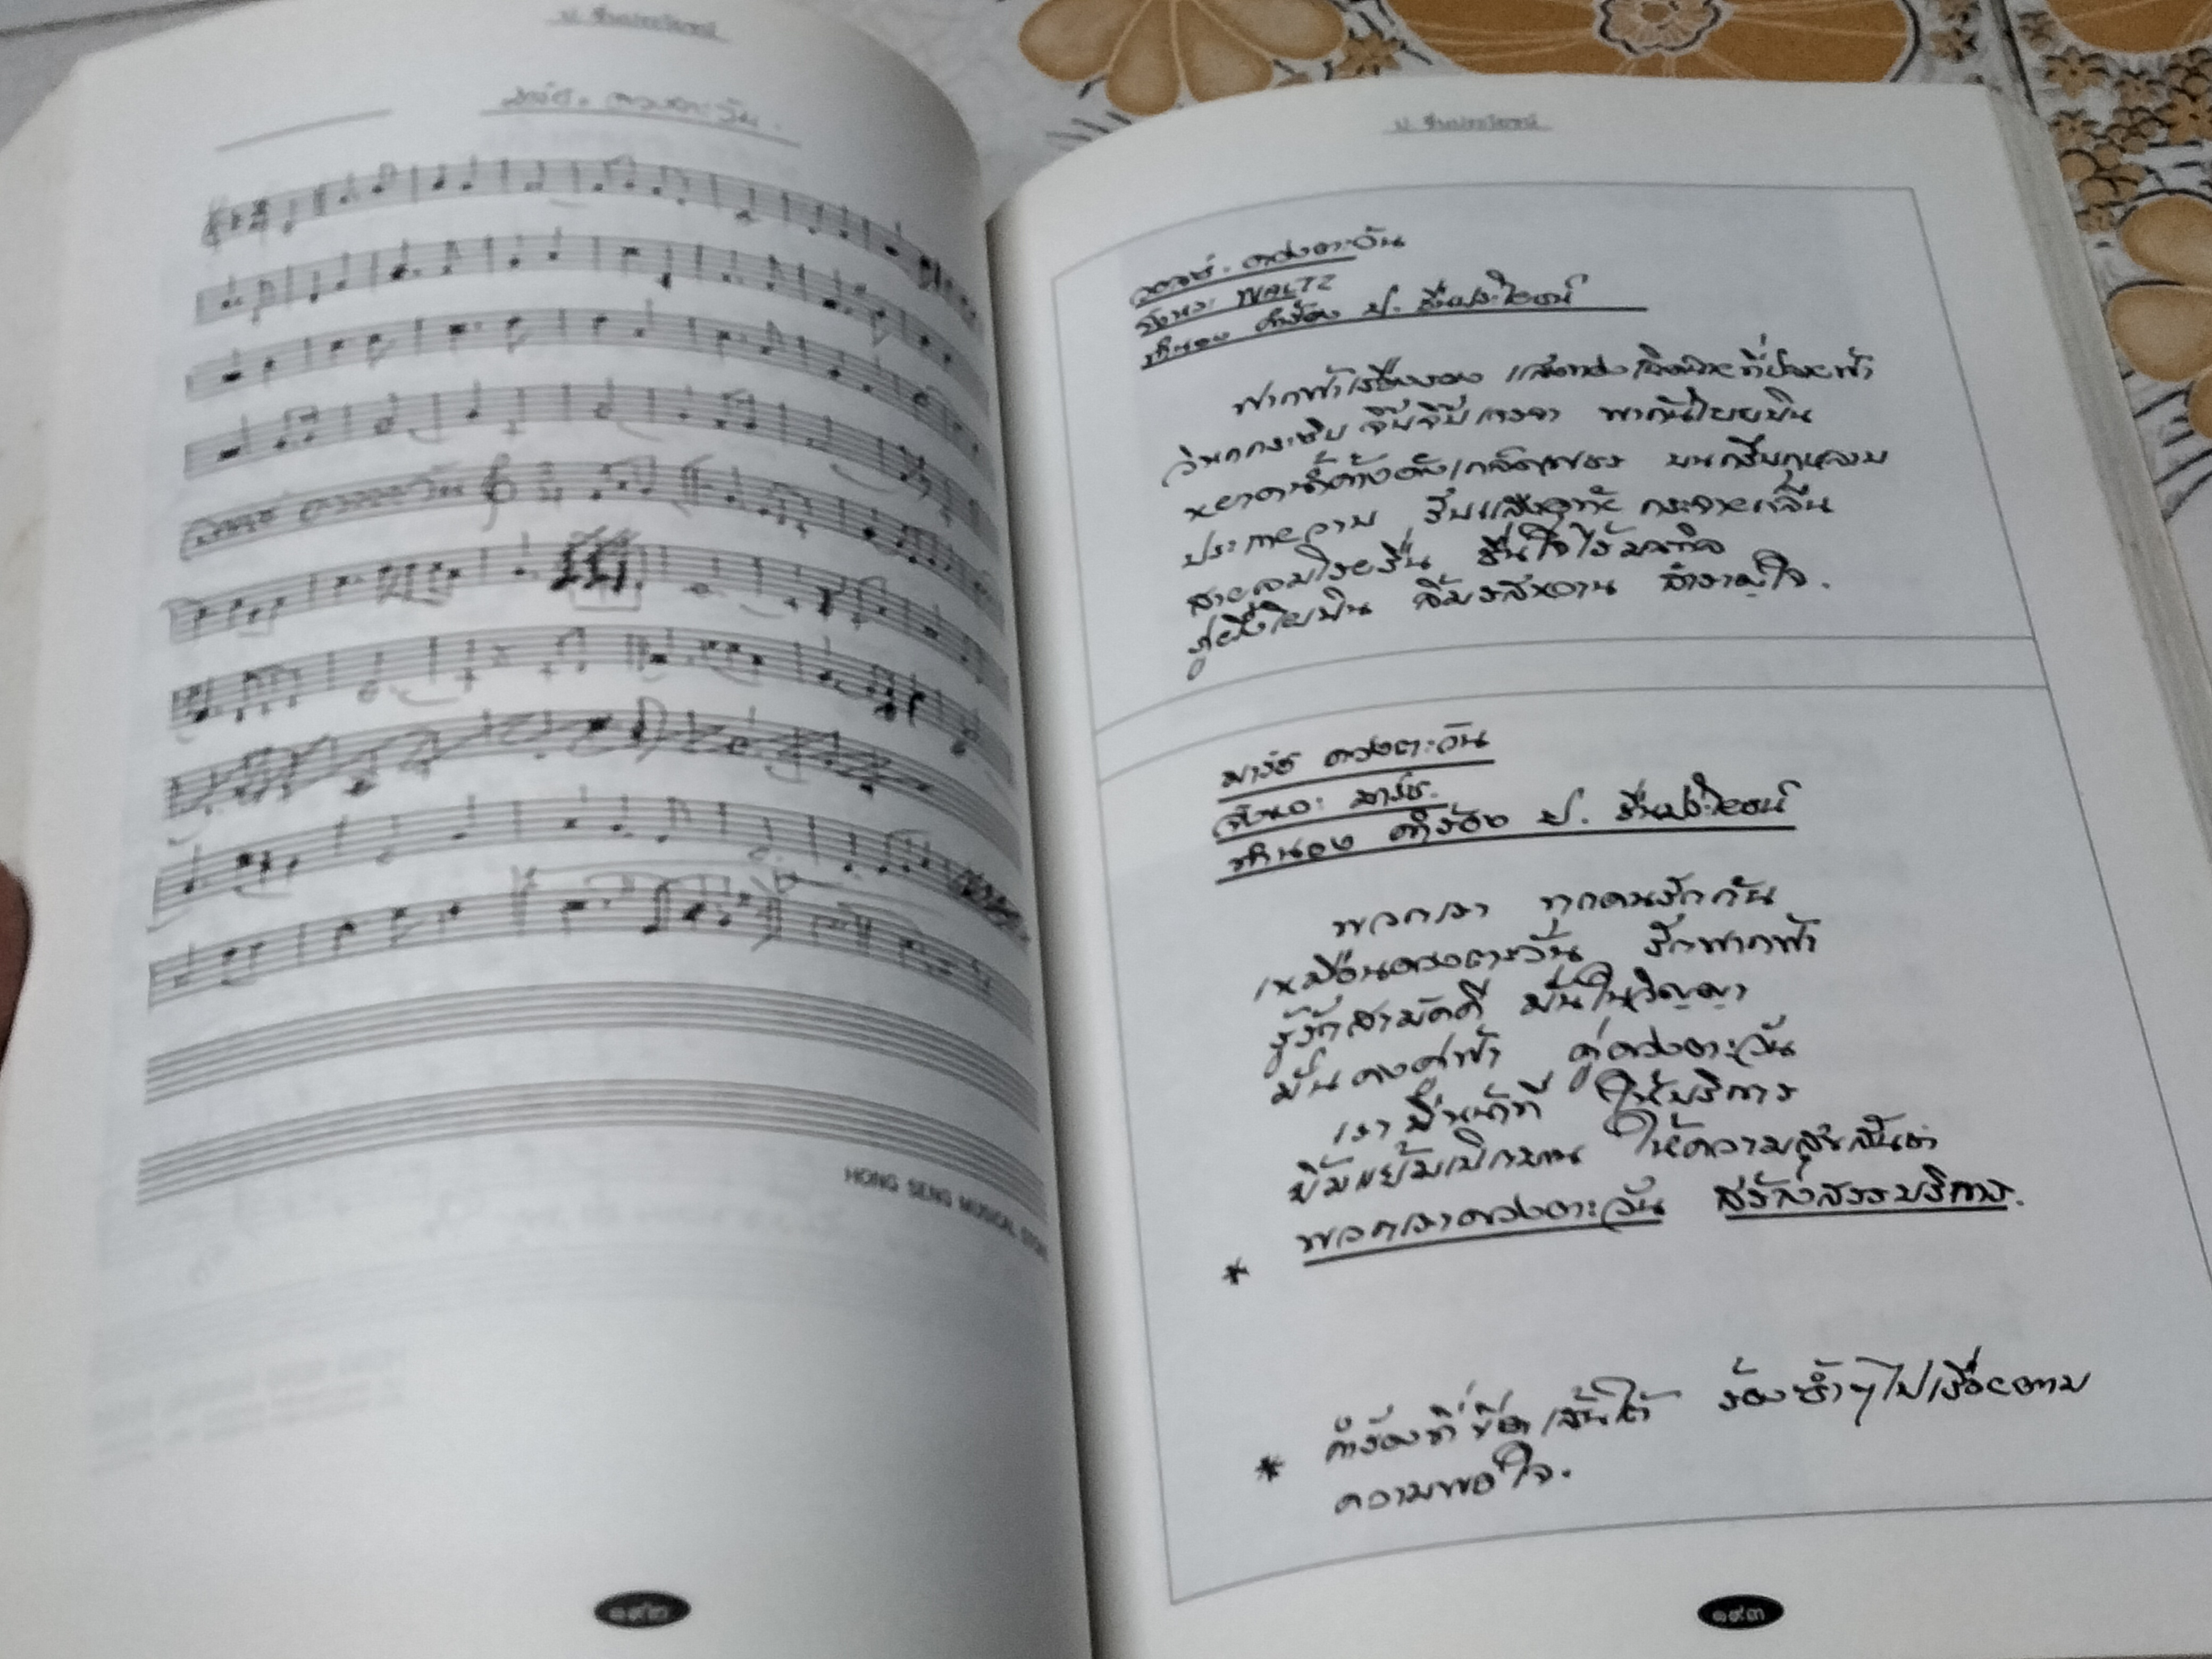 ป. ชื่นประโยชน์
มาร์ช. ดวงตะวัน.
วอลซ์ ดวงตะวัน
HONG SENG MUSICAL
๑๙๒
ป. ชื่นประโยชน์
วอลซ์. ดวงตะวัน
จังหวะ WALTZ
ทำนอง คำร้อง ป. ชื่นประโยชน์
ฟากฟ้าเรืองรอง แสงทอง ที่ปลายฟ้า
วิหคกระซิบ จิ๊บจิ๊บเจรจา พากันโบยบิน
หยาดน้ำค้างดังเกล็ดเพชร บนกลีบกุหลาบ
ประกายวาม รับแสงอุทัย กระจายกลิ่น
สายลมโชยชื่น ชื่นใจไร้มลทิน
ภู่ผึ้งโบยบิน ลิ้มรสหวาน สำราญใจ.
มาร์ช ดวงตะวัน
จังหวะ มาร์ช.
ทำนอง คำร้อง ป. ชื่นประโยชน์
พวกเรา ทุกคนรักกัน
เหมือนดวงตะวัน รักฟากฟ้า
รู้รักสามัคคี มั่นในวิญญา
มั่นคงคู่ฟ้า คู่ดวงตะวัน
เรา ให้บริการ
ยิ้มแย้มเบิกบาน ให้ความสุขสันต์
พวกเราดวงตะวัน สร้างสรรบริการ.
*
* คำร้องที่ขีดเส้นใต้ ร้องซ้ำๆไปเรื่อยตาม
ความพอใจ.
๑๙๓